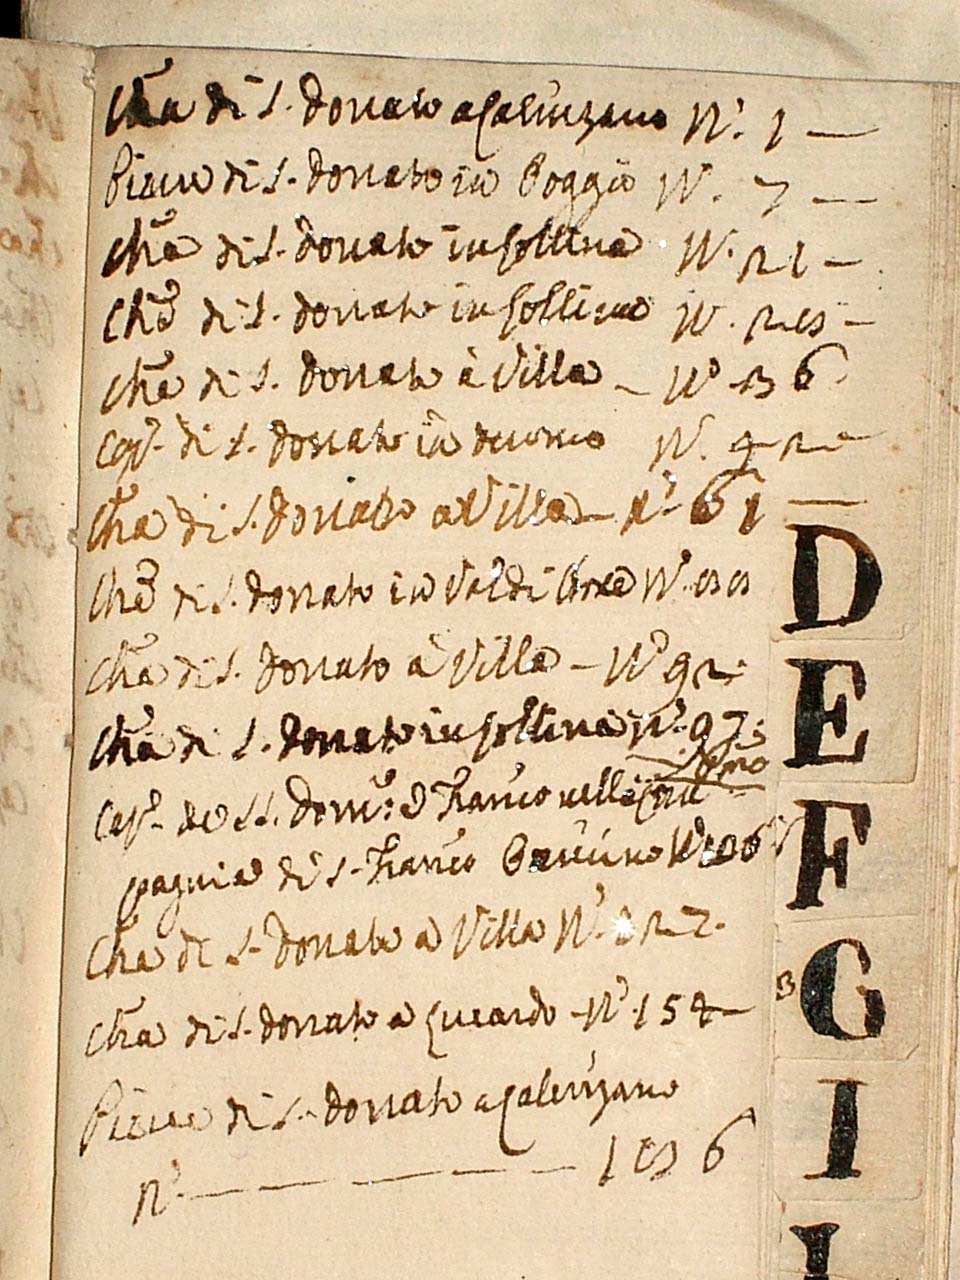 Chã di S. Donato a Calenzano N.° 1 —
Pieve di S. Donato in Poggio N. 7 —
Chã di S. Donato in Collina N. 21 —
Chã di S. Donato in Collina N. 25 —
Chã di S. Donato à Villa — N.° 36.
Cap. di S. Donato in duomo N. 42 —
Chã di S. Donato a Villa — N.° 61 —
Chã di S. Donato in Val di N.°
Chã di S. Donato à Villa — N.° 92.
Chã di S. Donato in Collina N.° 97.
Cap. de SS. Dom.° e Franco nella Com
pagnia di S. Franco N.°
Chã di S. Donato a Villa N.° 127.
Chã di S. Donato a N.° 154 —
Pieve di S. Donato a Calenzano
N.° — — — — 156
D
E
F
G
I